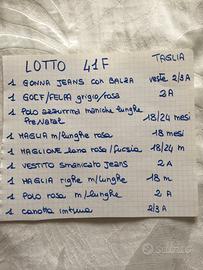 LOTTO 41F TAGLIA
1 GONNA JEANS con BALZA veste 2/3A
1 GOLF/FELPA grigio/rosa 2A
1 POLO azzurrini maniche lunghe
Prenatal 18/24 mesi
1 MAGLIA m/lunghe rosa 18 mesi
1 MAGLIONE lana rosa/fucsia 18/24 m
1 VESTITO smanicato jeans 2 A
1 MAGLIA righe m/lunghe 18 m
1 POLO rosa m/lunghe 2 A
1 canotta intima 2/3 A
subito